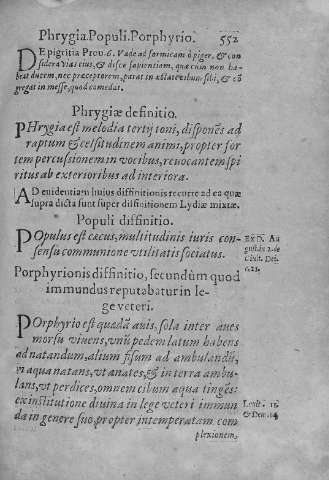 Phrygia. Populi. Porphyrio. 552
DE pigritia Prou. 6. Vade ad formicam ò piger, & con
sidera vias eius, & disce sapientiam, quæ cùm non ha-
beat ducem, nec præceptorem, parat in æstate cibum sibi, & cõ
gregat in messe, quod comedat.
Phrygiæ definitio.
PHrygia est melodia tertij toni, disponẽs ad
raptum & celsitudinem animi, propter for
tem percussionem in vocibus, reuocantem spi
ritus ab exterioribus ad interiora.
AD euidentiam huius diffinitionis recurre ad ea quæ
supra dicta sunt super diffinitionem Lydiæ mixtæ.
Populi diffinitio.
POpulus est cœtus, multitudinis iuris con-
sensu communione vtilitatis sociatus.
EX D. Au
gustin. 2. de
Ciuit. Dei.
c. 21.
Porphyrionis diffinitio, secundùm quod
immundus reputabatur in le-
ge veteri.
POrphyrio est quædã auis, sola inter aues
morsu viuens, vnũ pedem latum habens
ad natandum, alium fissum ad ambulandũ,
in aqua natans, vt anates, & in terra ambu-
lans, vt perdices, omnem cibum aqua tingẽs:
ex institutione diuina in lege veteri immun
da in genere suo, propter intemperatam com
Leuit. 11.
& Deu. 14.
plexionem,